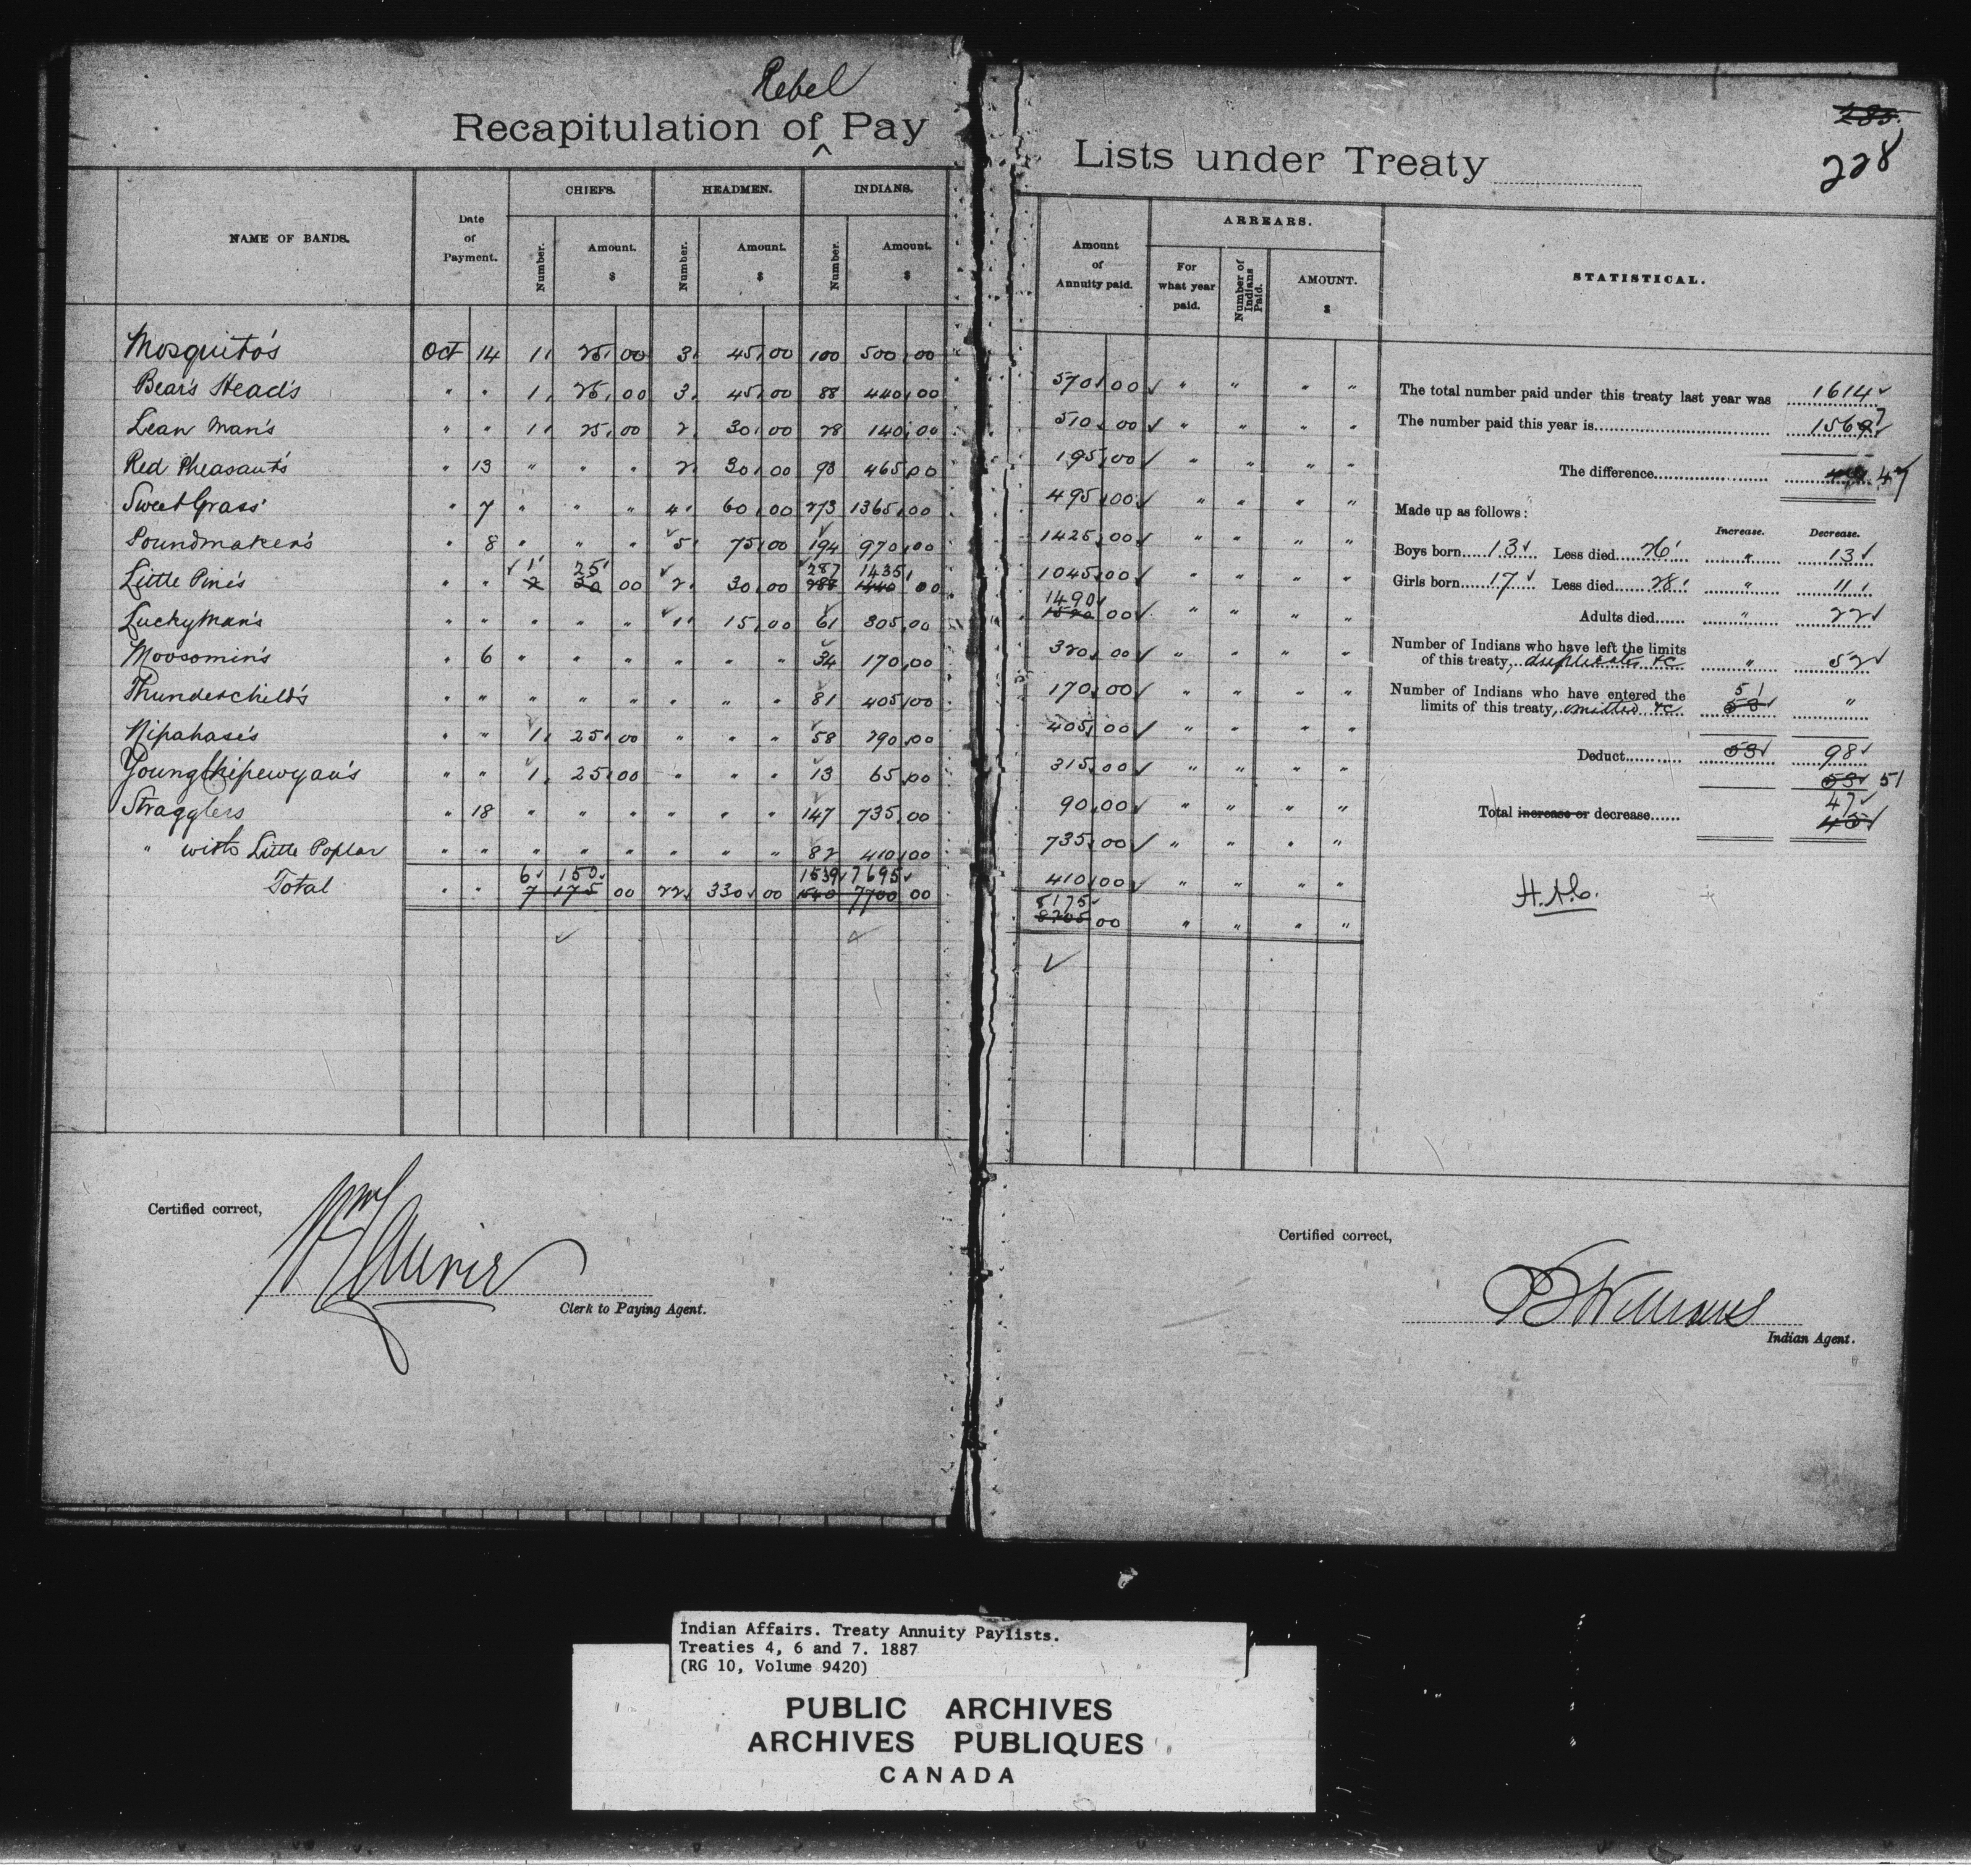 Rebel
Recapitulation of ^ Pay Lists under Treaty
285.
228
NAME OF BANDS. Date of Payment. CHIEFS. Number. Amount. $ HEADMEN. Number. Amount. $ INDIANS. Number. Amount. $ Amount of Annuity paid. ARREARS. For what year paid. Number of Indians Paid. AMOUNT. $ STATISTICAL.
Mosquito's Oct 14 1 25 00 3 45 00 100 500 00 570 00 " " " "
Bear's Head's " " 1 25 00 3 45 00 88 440 00 510 00 " " " "
Lean Man's " " 1 25 00 2 30 00 28 140 00 195 00 " " " "
Red Pheasant's " 13 " " " 2 30 00 93 465 00 495 00 " " " "
Sweet Grass' " 7 " " " 4 60 00 273 1365 00 1425 00 " " " "
Poundmaker's " 8 " " " 5 75 00 194 970 00 1045 00 " " " "
1 25 287 1435 1490
Little Pine's " " 2 30 00 2 30 00 288 1440 00 1520 00 " " " "
Lucky Man's " " " " " 1 15 00 61 305 00 320 00 " " " "
Moosomin's " 6 " " " " " " 34 170 00 170 00 " " " "
Thunderchild's " " " " " " " " 81 405 00 405 00 " " " "
Nipahase's " " 1 25 00 " " " 58 290 00 315 00 " " " "
Young Chipewyan's " " 1 25 00 " " " 13 65 00 90 00 " " " "
Stragglers " 18 " " " " " " 147 735 00 735 00 " " " "
" with Little Poplar " " " " " " " " 82 410 00 410 00 " " " "
6 150 1539 7695 8175
Total " " 7 175 00 22 330 00 1540 7700 00 8205 00 " " " "
The total number paid under this treaty last year was 1614
The number paid this year is 1567
The difference 47
Made up as follows:
Increase. Decrease.
Boys born 13 Less died 26 " 13
Girls born 17 Less died 28 " 11
Adults died " 22
Number of Indians who have left the limits
of this treaty, duplicates &c " 52
Number of Indians who have entered the 51
limits of this treaty, omitted &c 53 "
Deduct 53 98
53 51
47
Total increase or decrease 45
H.N.C.
Certified correct,
Clerk to Paying Agent.
Certified correct,
Indian Agent.
Indian Affairs. Treaty Annuity Paylists.
Treaties 4, 6 and 7. 1887
(RG 10, Volume 9420)
PUBLIC ARCHIVES
ARCHIVES PUBLIQUES
CANADA